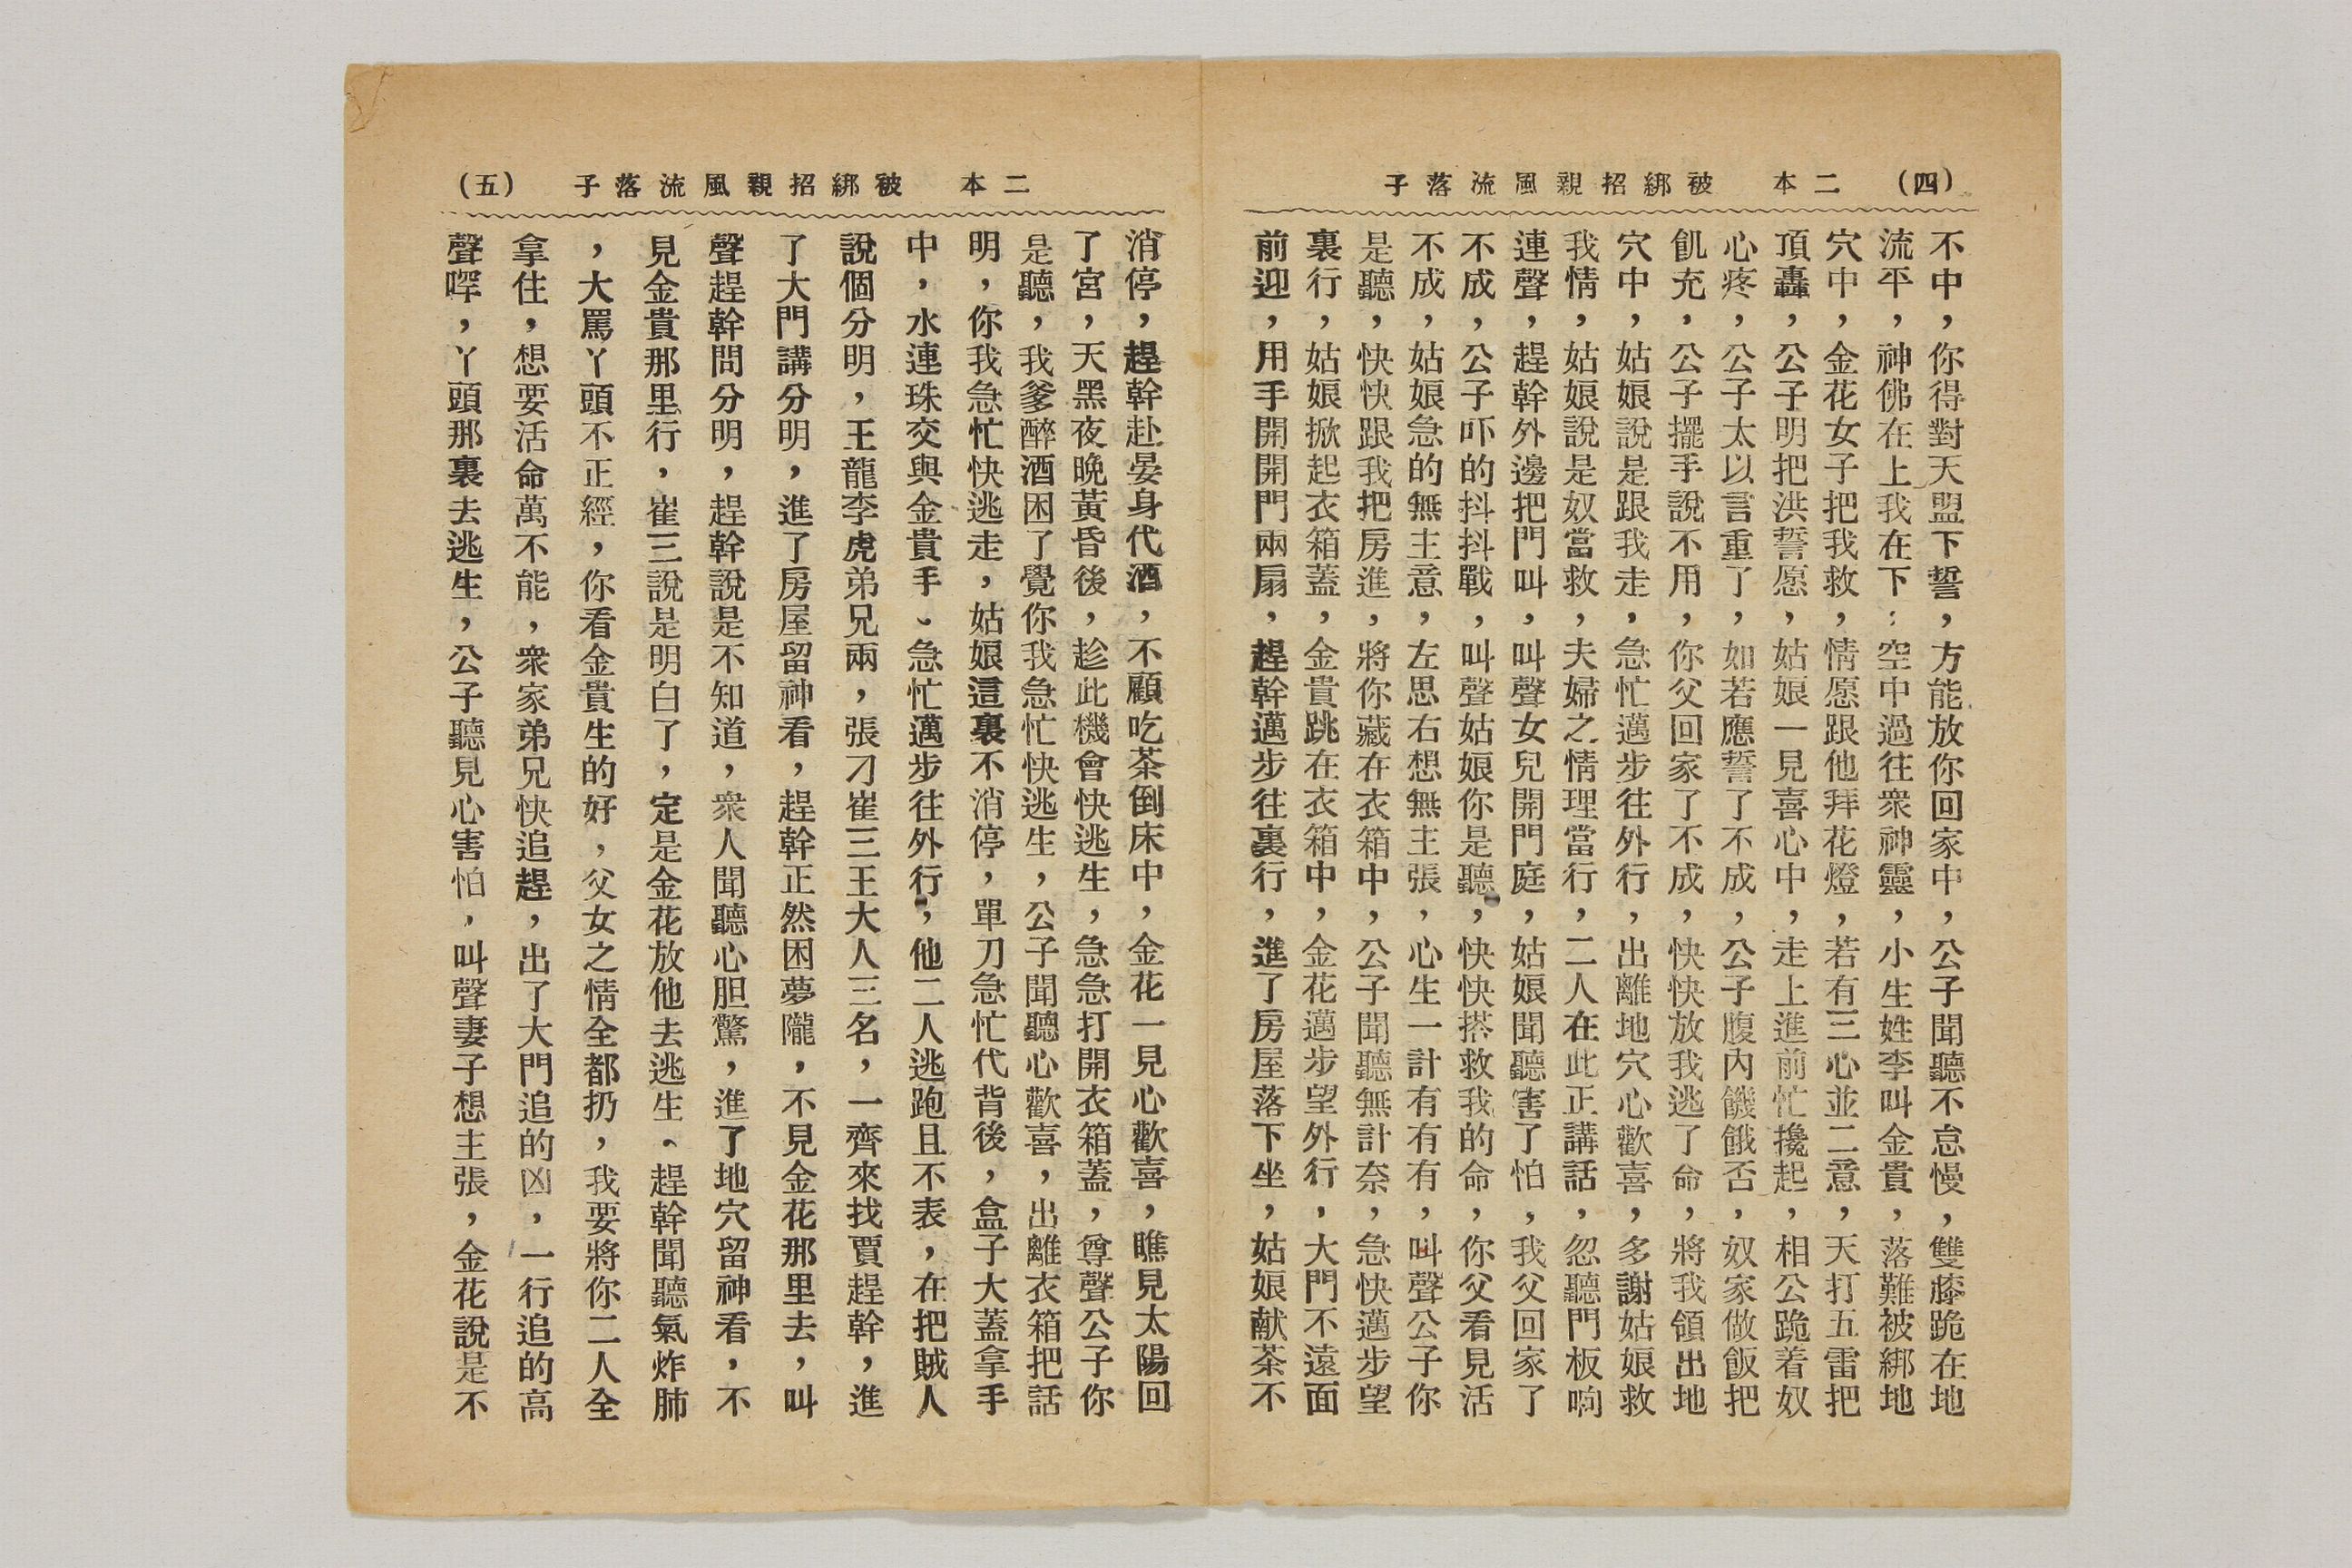 (四) 二本 被綁招親風流落子
不中，你得對天盟下誓，方能放你回家中，公子聞聽不怠慢，雙膝跪在地
流平，神佛在上我在下；空中過往衆神靈，小生姓李叫金貴，落難被綁地
穴中，金花女子把我救，情愿跟他拜花燈，若有三心並二意，天打五雷把
頂轟，公子明把洪誓愿，姑娘一見喜心中，走上進前忙攙起，相公跪着奴
心疼，公子太以言重了，如若應誓了不成，公子腹內饑餓否，奴家做飯把
飢充，公子擺手說不用，你父回家了不成，快快放我逃了命，將我領出地
穴中，姑娘說是跟我走，急忙邁步往外行，出離地穴心歡喜，多謝姑娘救
我情，姑娘說是奴當救，夫婦之情理當行，二人在此正講話，忽聽門板响
連聲，趕幹外邊把門叫，叫聲女兒開門庭，姑娘聞聽害了怕，我父回家了
不成，公子吓的抖抖戰，叫聲姑娘你是聽，快快搭救我的命，你父看見活
不成，姑娘急的無主意，左思右想無主張，心生一計有有有，叫聲公子你
是聽，快快跟我把房進，將你藏在衣箱中，公子聞聽無計奈，急快邁步望
裏行，姑娘掀起衣箱蓋，金貴跳在衣箱中，金花邁步望外行，大門不遠面
前迎，用手開開門兩扇，趕幹邁步往裏行，進了房屋落下坐，姑娘献茶不
二本 被綁招親風流落子 (五)
消停，趕幹赴晏身代酒，不顧吃茶倒床中，金花一見心歡喜，瞧見太陽回
了宮，天黑夜晚黃昏後，趁此機會快逃生，急急打開衣箱蓋，尊聲公子你
是聽，我爹醉酒困了覺你我急忙快逃生，公子聞聽心歡喜，出離衣箱把話
明，你我急忙快逃走，姑娘這裏不消停，單刀急忙代背後，盒子大蓋拿手
中，水連珠交與金貴手、急忙邁步往外行，他二人逃跑且不表，在把賊人
說個分明，王龍李虎弟兄兩，張刁崔三王大人三名，一齊來找賈趕幹，進
了大門講分明，進了房屋留神看，趕幹正然困夢隴，不見金花那里去，叫
聲趕幹問分明，趕幹說是不知道，衆人聞聽心胆驚，進了地穴留神看，不
見金貴那里行，崔三說是明白了，定是金花放他去逃生、趕幹聞聽氣炸肺
，大罵丫頭不正經，你看金貴生的好，父女之情全都扔，我要將你二人全
拿住，想要活命萬不能，衆家弟兄快追趕，出了大門追的凶，一行追的高
聲㗱，丫頭那裏去逃生，公子聽見心害怕，叫聲妻子想主張，金花說是不